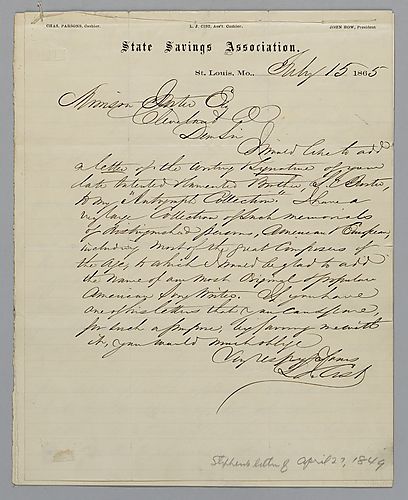 CHAS. PARSONS, Cashier.
L. J. CIST, Ass't. Cashier.
JOHN HOW, President
State Savings Association.
St. Louis, Mo., Feby 15 1865
Morrison Foster Esq
Cleveland O
Dear Sir
I would like to add
a letter of the writing & signature of your
late talented & lamented Brother, S. C. Foster,
to my "Autograph Collection." I have a
very large Collection of such memorials
of distinguished persons, American & European,
including most of the great Composers of
the Age, to which I would be glad to add
the name of our most Original & popular
American Song Writer. If you have
one of his letters that you can spare,
for such a purpose, by favoring me with
it, you would much oblige
Very respy Yours
L. J. Cist
Stephen's letter of April 27, 1849